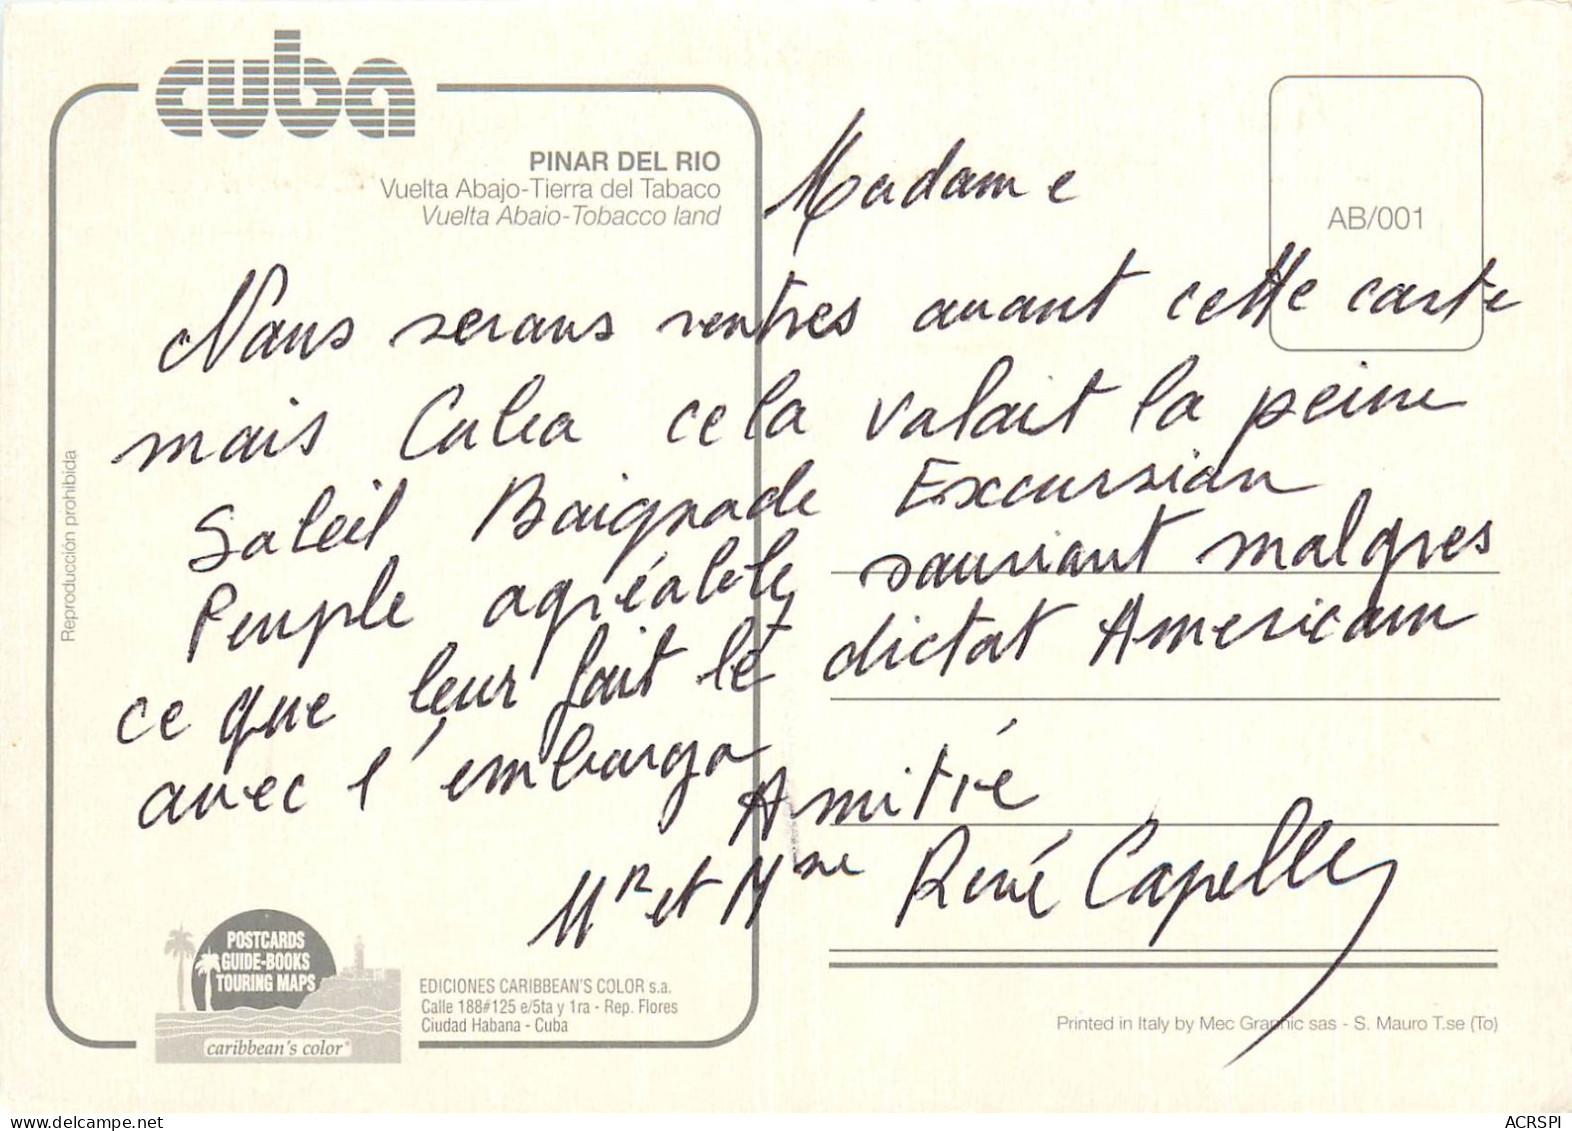 cuba
PINAR DEL RIO
Vuelta Abajo-Tierra del Tabaco
Vuelta Abaio-Tobacco land
AB/001
Madame
Nous serons rentres avant cette carte
mais Cuba cela valait la peine
Soleil Baignade Excursion
Peuple agréable souriant malgres
ce que leur fait le dictat Americain
avec l'embargo
Amitié
Mr et Mme René Capelle
Reproducción prohibida
POSTCARDS
GUIDE-BOOKS
TOURING MAPS
caribbean's color
EDICIONES CARIBBEAN'S COLOR s.a.
Calle 188#125 e/5ta y 1ra - Rep. Flores
Ciudad Habana - Cuba
Printed in Italy by Mec Graphic sas - S. Mauro T.se (To)
ACRSPI